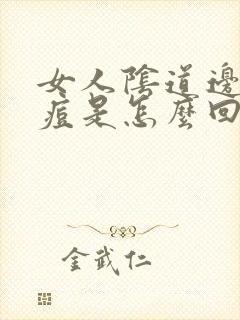 女人陰道邊
痘是怎麼回
金武仁